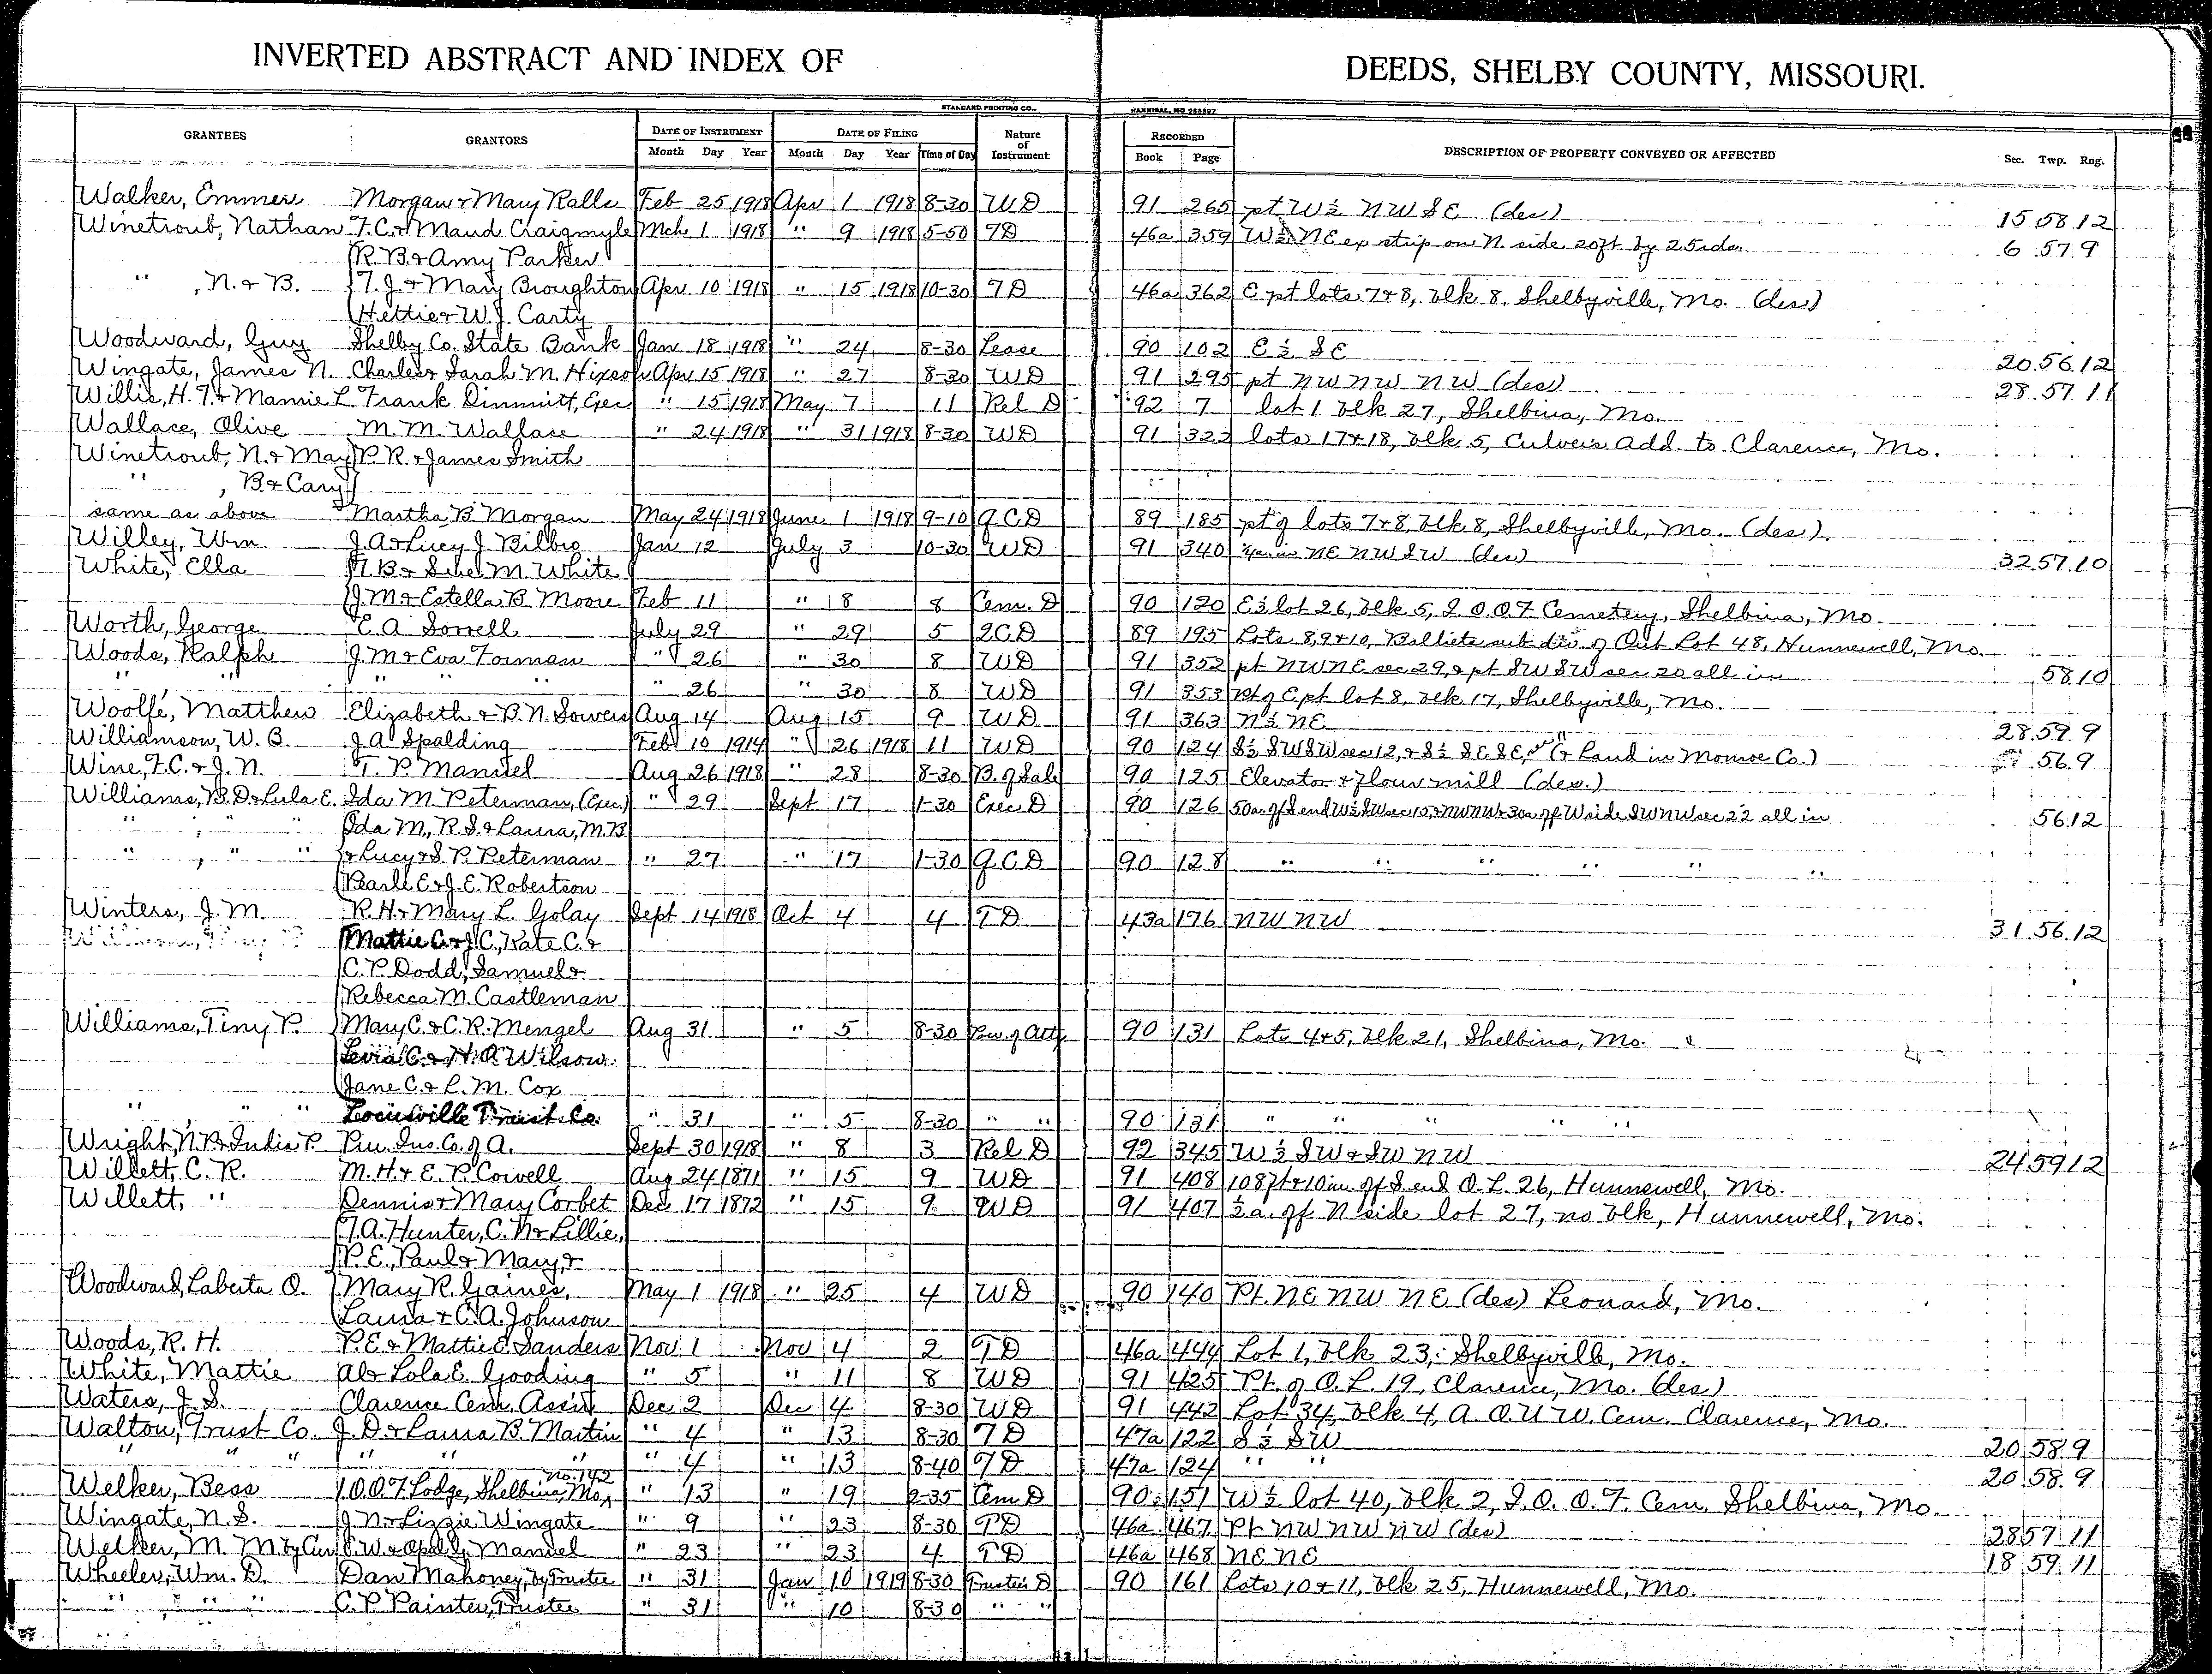 INVERTED ABSTRACT AND INDEX OF DEEDS, SHELBY COUNTY, MISSOURI.
STANDARD PRINTING CO., HANNIBAL, MO.
GRANTEES GRANTORS DATE OF INSTRUMENT DATE OF FILING Nature of Instrument RECORDED DESCRIPTION OF PROPERTY CONVEYED OR AFFECTED Sec. Twp. Rng.
Month Day Year Month Day Year Time of Day Book Page
Walker, Emmer Morgan & Mary Ralls Feb 25 1918 Apr 1 1918 8-30 WD 91 265 pt W½ NW SE (des) 15 58 12
Winetroub, Nathan F.C. & Maud Craigmyle Mch 1 1918 " 9 1918 5-50 TD 46a 359 W½ NE ex strip on N. side 20ft by 25rds. 6 57 9
R.B. & Amy Parker
" , N. & B. T.J. & Mary Broughton Apr 10 1918 " 15 1918 10-30 TD 46a 362 E pt lots 7&8, blk 8, Shelbyville, Mo. (des)
Hettie & W.J. Carty
Woodward, Guy Shelby Co. State Bank Jan 18 1918 " 24 8-30 Lease 90 102 E½ SE 20 56 12
Wingate, James N. Charles & Sarah M. Hixson Apr 15 1918 " 27 8-30 WD 91 295 pt NW NW NW (des) 28 57 11
Willis, H.T. & Mamie L. Frank Dimmitt, Exec " 15 1918 May 7 11 Rel D 92 7 lot 1 blk 27, Shelbina, Mo.
Wallace, Olive M.M. Wallace " 24 1918 " 31 1918 8-30 WD 91 322 lots 17&18, blk 5, Culvers Add. to Clarence, Mo.
Winetroub, N. & May P.R. & James Smith
" , B. & Cary
same as above & Martha B Morgan May 24 1918 June 1 1918 9-10 QCD 89 185 pt of lots 7&8, blk 8, Shelbyville, Mo. (des)
Willey, Wm. J.A. & Lucy J. Bilbro Jan 12 July 3 10-30 WD 91 340 in NE NW SW (des) 32 57 10
White, Ella T.B. & Sue M. White
J.M. & Estella B. Moore Feb 11 " 8 8 Cem. D 90 120 E½ lot 26, blk 5, I.O.O.F. Cemetery, Shelbina, Mo.
Worth, George E.A. Sorrell July 29 " 29 5 QCD 89 195 Lots 8,9&10, Balliets sub div of Out Lot 48, Hunnewell, Mo.
Woods, Ralph J.M. & Eva Forman " 26 " 30 8 WD 91 352 pt NW NE sec 29, & pt SW SW sec 20 all in 58 10
" " " " " " 26 " 30 8 WD 91 353 Pt of E pt lot 8, blk 17, Shelbyville, Mo.
Woolfe, Matthew Elizabeth & B.N. Sowers Aug 14 Aug 15 9 WD 91 363 N½ NE 28 59 9
Williamson, W.B. J.A. Spalding Feb 10 1914 " 26 1918 11 WD 90 124 S½ SW SW sec 12, & S½ SE SE (& Land in Monroe Co.) 56 9
Wine, F.C. & J.N. T.P. Manuel Aug 26 1918 " 28 8-30 B. of Sale 90 125 Elevator & flour mill (des.)
Williams, B.D. & Lula E. Ida M Peterman, (Exec) " 29 Sept 17 1-30 Exec D 90 126 50a. off S end W½ SW sec 15, & NW NW & 30a off W side SW NW sec 22 all in 56 12
" , " " Ida M., R.S. & Laura, M.B.
" , " " & Lucy & S.P. Peterman " 27 " 17 1-30 Q.C.D 90 128 " " " " " "
Pearle E. & J.E. Robertson
Winters, J.M. R.H. & Mary L. Golay Sept 14 1918 Oct 4 4 TD 43a 176 NW NW 31 56 12
Mattie C. & J.C., Kate C. &
C.P. Dodd, Samuel &
Rebecca M. Castleman
Williams, Tiny P. Mary C. & C.R. Mengel Aug 31 " 5 8-30 Pow. of Atty 90 131 Lots 4&5, blk 21, Shelbina, Mo.
Levia C. & H.A. Wilson
Jane C. & L.M. Cox
" , " " Louisville Trust Co. " 31 " 5 8-30 " " 90 131 " " " " "
Wright, N.B. & India P. Pru. Ins. Co. of A. Sept 30 1918 " 8 3 Rel D 92 345 W½ SW & SW NW 24 59 12
Willett, C.R. M.H. & E.P. Cowell Aug 24 1871 " 15 9 WD 91 408 108ft & 10in. off S. end O.L. 26, Hunnewell, Mo.
Willett, " Dennis & Mary Corbet Dec 17 1872 " 15 9 WD 91 407 ½a. off N side lot 27, no blk, Hunnewell, Mo.
T.A. Hunter, C.N. & Lillie,
P.E., Paul & Mary, &
Woodward, Laberta O. Mary R. Gaines, May 1 1918 " 25 4 WD 90 140 Pt. NE NW NE (des) Leonard, Mo.
Laura & C.A. Johnson
Woods, R.H. P.E. & Mattie E. Sanders Nov 1 Nov 4 2 TD 46a 444 Lot 1, blk 23, Shelbyville, Mo.
White, Mattie Al & Lola E. Gooding " 5 " 11 8 WD 91 425 Pt. of O.L. 19, Clarence, Mo. (des)
Waters, J.S. Clarence Cem. Ass'n Dec 2 Dec 4 8-30 WD 91 442 Lot 34, blk 4, A.O.U.W. Cem. Clarence, Mo.
Walton, Trust Co. J.D. & Laura B. Martin " 4 " 13 8-30 TD 47a 122 S½ SW 20 58 9
" " " " " " " 4 " 13 8-40 TD 47a 124 " " 20 58 9
Welker, Bess I.O.O.F. Lodge, No. 142 Shelbina, Mo., " 13 " 19 2-35 Cem D 90 151 W½ lot 40, blk 2, I.O.O.F. Cem. Shelbina, Mo.
Wingate, N.S. J.N. & Lizzie Wingate " 9 " 23 8-30 TD 46a 467 Pt. NW NW NW (des) 28 57 11
Welker, M.M. by Cur. & Opal G. Manuel " 23 " 23 4 TD 46a 468 NE NE 18 59 11
Wheeler, Wm. D. Dan Mahoney, by Trustee " 31 Jan 10 1919 8-30 Trustee's D 90 161 Lots 10&11, blk 25, Hunnewell, Mo.
" , " " C.P. Painter, Trustee " 31 " 10 8-30 " "